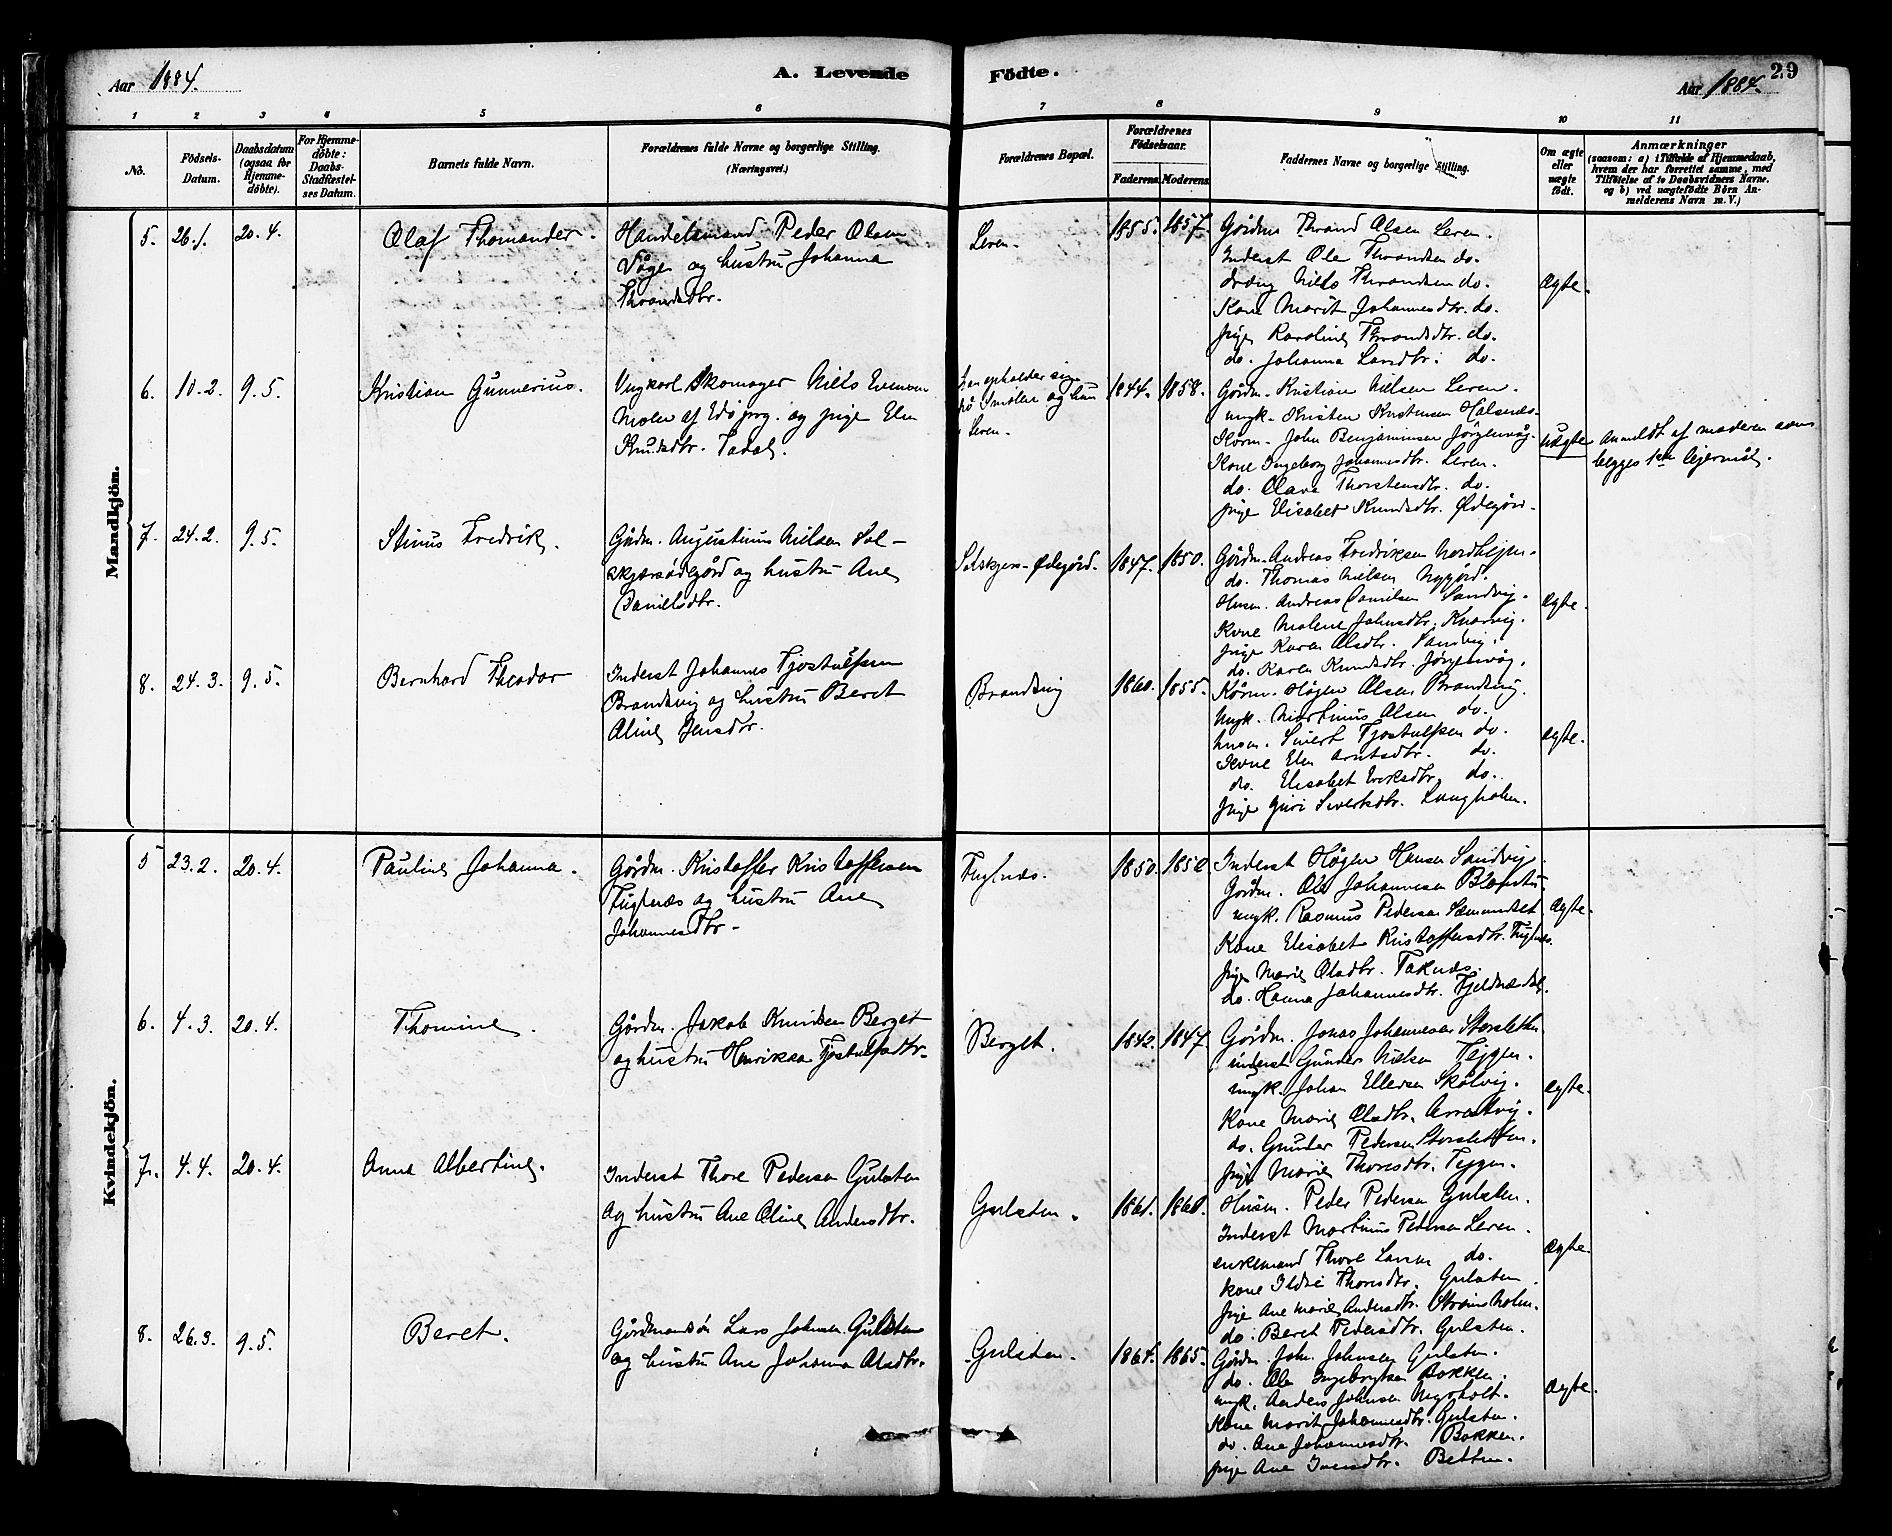 Aar 1884.
A. Levende Födte.
Aar 1884.
29
1 2 3 4 5 6 7 8 9 10 11
No.
Födsels-Datum.
Daabsdatum (ogsaa for Hjemme-döbte).
For Hjemme-döbte: Daabs-Stadfæstel-ses Datum.
Barnets fulde Navn.
Forældrenes fulde Navne og borgerlige Stilling.
(Næringsvei.)
Forældrenes Bopæl.
Forældrenes Födselsaar.
Faderens. Moderens.
Faddernes Navne og borgerlige Stilling.
Om ægte eller uægte født.
Anmærkninger
(saasom: a) i Tilfælde af Hjemmedaab,
hvem der har forrettet samme, med
Tilföielse af to Daabsvidners Navne.
og b) ved uægtefödte Börn An-
melderens Navn m. V.)
Mandkjön.
5. 26.1. 20.4. Olaf Thomander.
Handelsmand Peder Olsen
Våge og hustru Johanna
Throndsdtr.
Leren. 1855. 1857.
Gårdm Thrond Olsen Leren.
Inderst Ole Throndsen do.
dreng Nils Throndsen do.
Kone Marit Johannesdtr. do.
pige Karoline Throndsdtr. do.
do. Johanna Larsdtr. do.
Ægte.
6. 10.2. 9.5. Kristian Gunnerius.
Ungkarl Skomager Nils Evensen
Molen af Edø prg. og pige Elen
Knudsdtr.
på Smølen og hun
i Leren.
1844. 1858.
Gårdm. Kristian Nilsen Leren.
ungk. Kristen Kristensen Halsnes.
Kårm. John Benjaminsen Jörgenvåg.
Kone Ingeborg Johannesdtr. Leren.
do. Olava Thorstensdtr. do.
pige Elisabet Knudsdtr. Ødegård.
uægte
Anmeldt af moderen som
begges 1ste lejermål.
7. 24.2. 9.5. Stinus Fredrik.
Gårdm. Augustinus Nilsen Sol-
skjærsødegård og hustru Ane
Danielsdtr.
Solskjærs-Ødegård. 1847. 1850.
Gårdm. Andreas Fredriksen Nordhejm.
do. Thomas Nilsen Nygård.
Husm. Andreas Danielsen Sandvig.
Kone Malene Johnsdtr. Knarvig.
pige Karen Olsdtr. Sandvig.
do. Karen Knudsdtr. Jörgenvåg.
Ægte.
8. 24.3. 9.5. Bernhard Theodor
Inderst Johannes Tjostulfsen
Brandsvig og hustru Beret
Oline Jensdtr.
Brandsvig 1860. 1855.
Kårm. Hågen Olsen Brandsvig.
Ungk. Martinus Olsen do.
husm. Sivert Tjostulfsen do.
Kone Elen Arntsdtr. do.
do. Elisabet Eriksdtr. do.
pige Guri Sivertsdtr. Langholm.
Ægte.
Kvindekjön.
5 23.2. 20.4. Pauline Johanna.
Gårdm. Kristoffer Kristoffersen
Fuglnæs og hustru Ane
Johannesdtr.
Fuglnæs. 1850. 1852.
Inderst Hågen Hansen Sandvig.
Gårdm. Ole Johannesen
ungk. Rasmus Pedersen Sæmundset
Kone Elisabet Kristoffersdtr. Fuglnæs.
pige Marie Olsdtr. Taknæs.
do. Hanna Johannesdtr.
Ægte.
6. 4.3. 20.4. Thomine.
Gårdm. Jakob Knudsen Berget
og hustru Henrikka Tjostulfsdtr.
Berget. 1842. 1847.
Gårdm. Jonas Johannesen Storsletten.
inderst Gunder Nilsen Teggen.
ungk. Johan Ellevsen Skålvig.
Kone Marie Olsdtr. Arasvig.
do. Gunder Pedersen Storsletten.
pige Marie Thoresdtr. Teggen.
Ægte.
7. 4.4. 20.4. Anna Albertine.
Inderst Thore Pedersen Gulsten
og hustru Ane Oline Andersdtr.
Gulsten. 1861. 1860.
Husm. Peder Pedersen Gulsten.
Inderst Martinus Pedersen Leren.
enkemand Thore Larsen do.
kone Ildri Thoresdtr. Gulsten
pige Ane Marie Andersdtr. Strömsholm.
do. Beret Pedersdtr. Gulsten.
Ægte.
8. 26.3. 9.5. Beret.
Gårdmandsön Lars Johnsen Gulsten
og hustru Ane Johanna Olsdtr.
Gulsten. 1864. 1865.
Gårdm. John Johnsen Gulsten.
do. Ole Ingebrigtsen Bakken.
ungk. Anders Johnsen Nygsholt.
Kone Marit Johannesdtr. Gulsten.
do. Ane Johannesdtr. Bakken.
pige Ane Iversdtr. Betten.
Ægte.